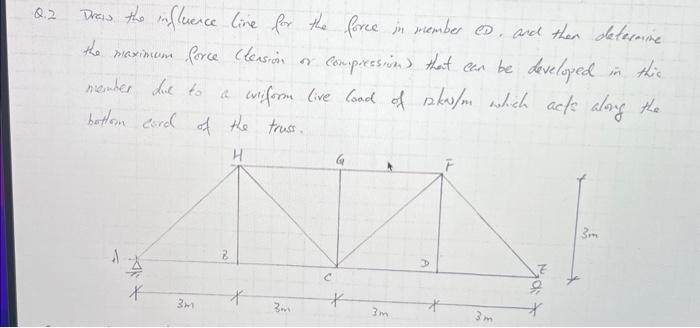 Q.2 Draw the influence line for the force in member CD, and then determine
the maximum force (tension or compression) that can be developed in this
member due to a uniform live load of 12kN/m which acts along the
bottom cord of the truss.
H G F
3m
A B C D E
3m 3m 3m 3m